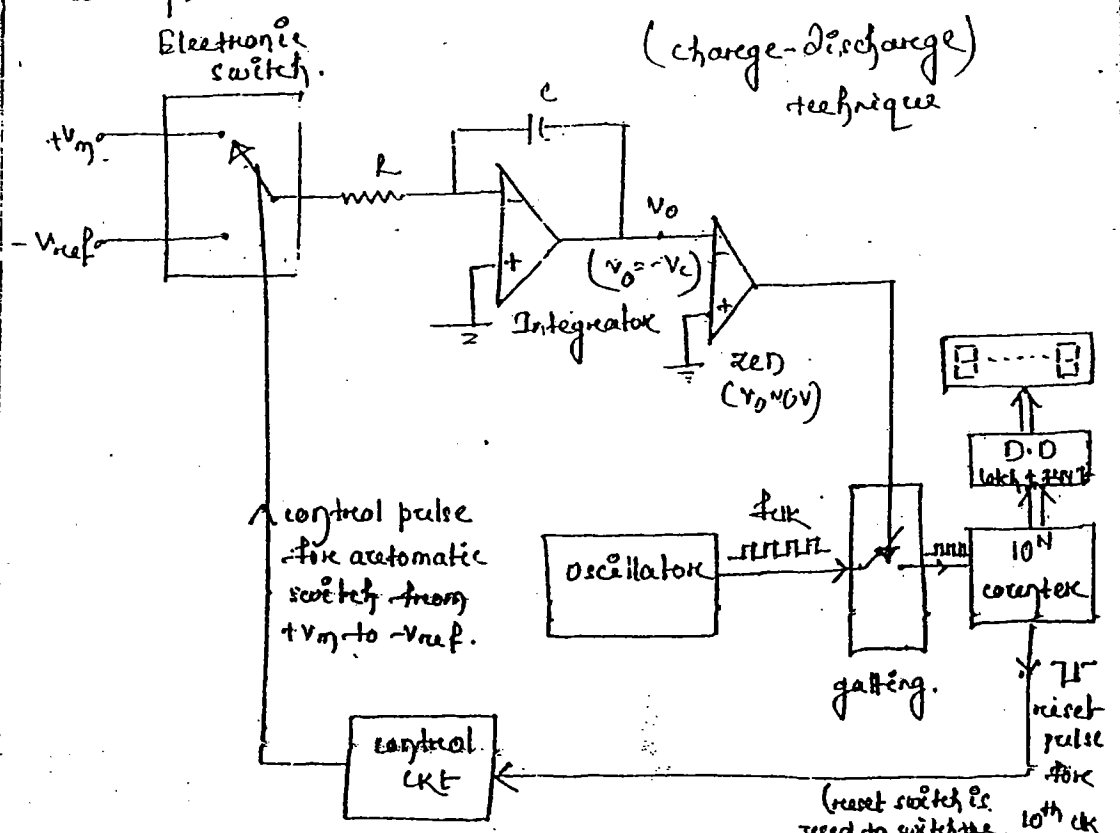 Electronic
switch.
(charge-discharge)
technique
C
+Vin
R
-Vref
-
+
Vo
(vo=-Vc)
Integrator
-
+
ZCD
(VD≈0V)
8-----8
D.D
latch +
control pulse
for automatic
switch from
+Vin to -Vref.
fclk
oscillator
10^N
counter
gatting.
reset
pulse
for
10th ck
control
CKt
(reset switch is
used to switch the